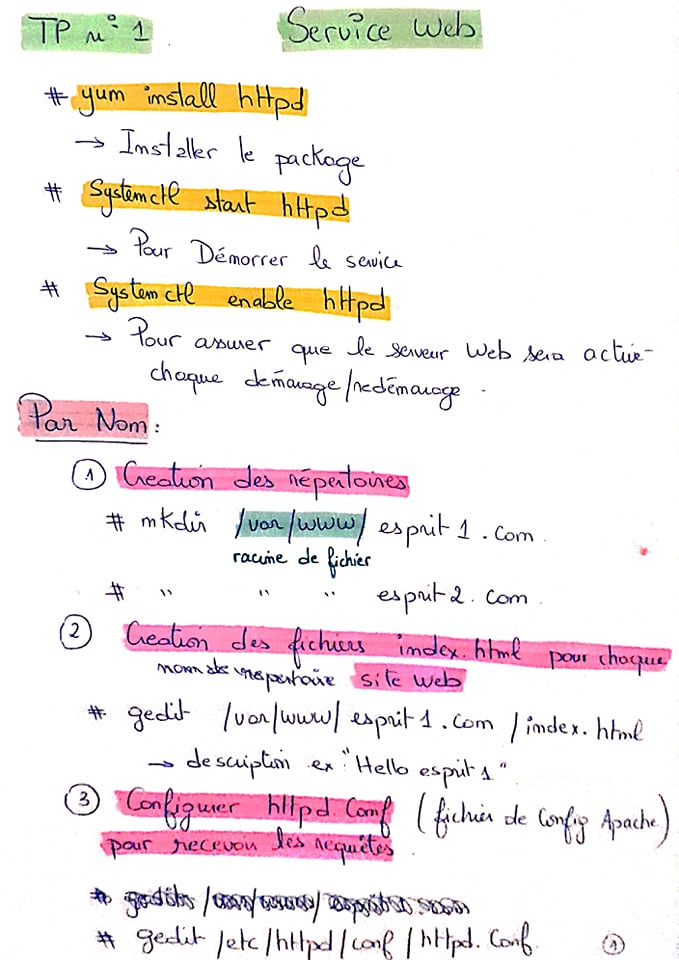 TP n° 1 Service Web
# yum install httpd
→ Installer le package
# Systemctl start httpd
→ Pour Démorrer le service
# Systemctl enable httpd
→ Pour assurer que le serveur Web sera active
chaque démarage/redémarage.
Par Nom:
① Creation des répertoires
# mkdir /var/www/ esprit1.com
racine de fichier
# " " " esprit2.com
② Creation des fichiers index.html pour chaque
nom de repertoire site web
# gedit /var/www/ esprit1.com /index.html
→ description ex "Hello esprit1"
③ Configurer httpd.Conf (fichier de Config Apache)
pour recevoir les requêtes
# gedit /etc/httpd/conf/httpd.Conf. ①